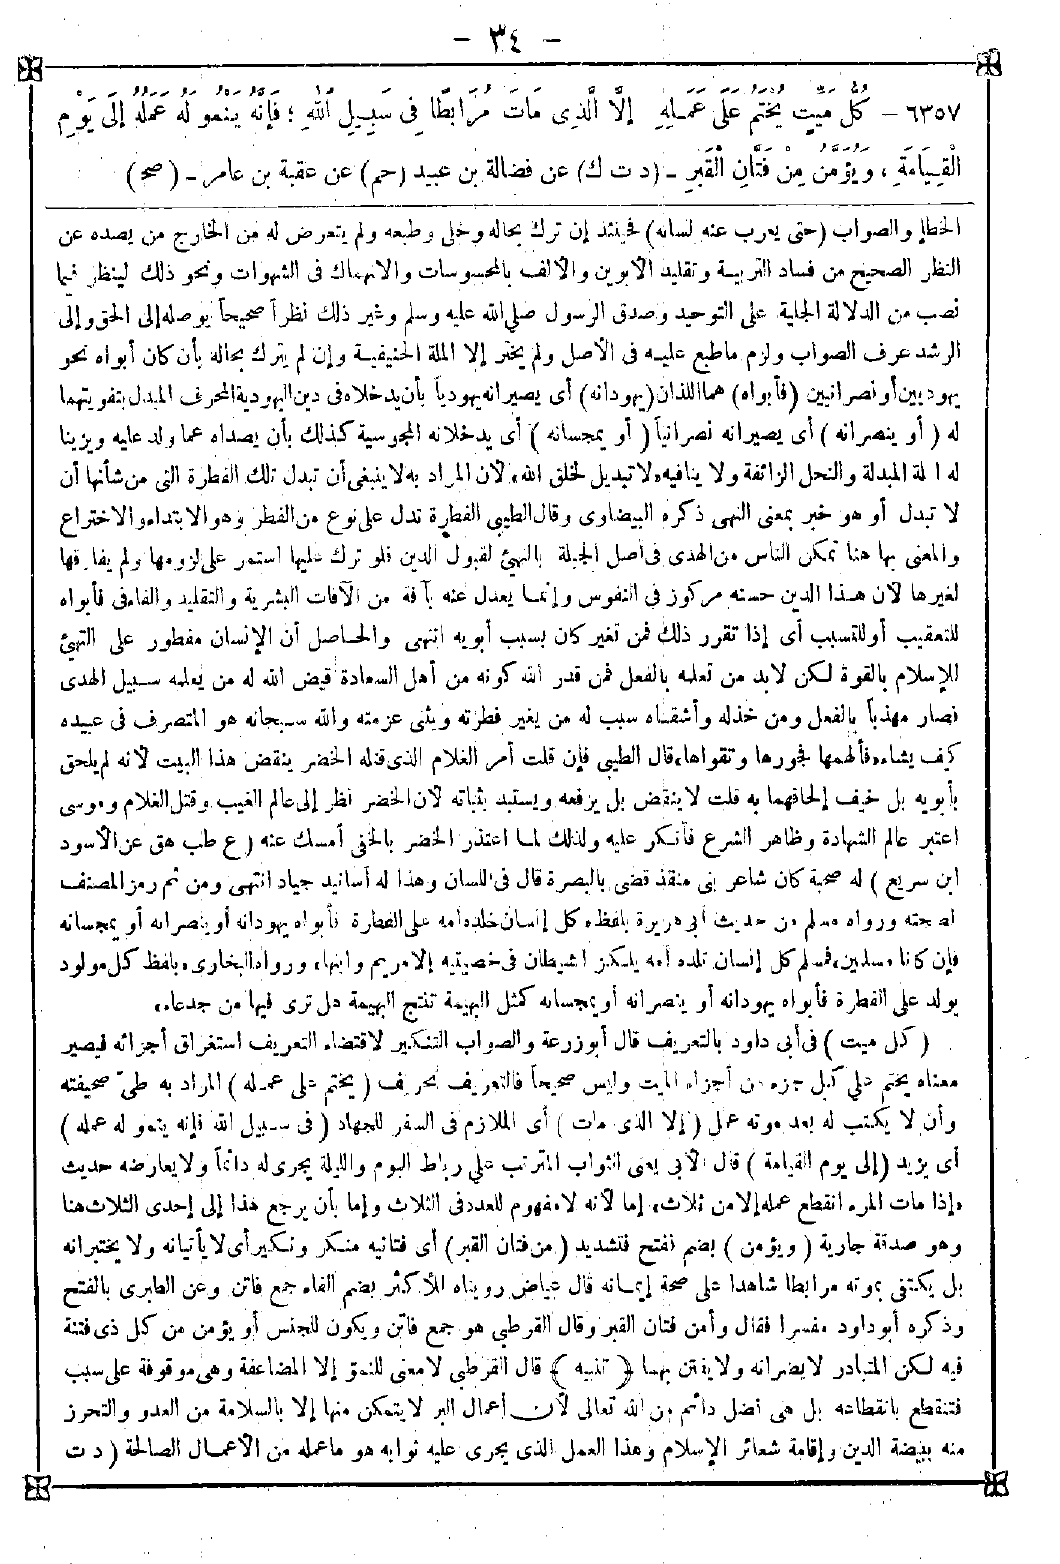 — ٣٤ —
٦٣٥٧ – كُلُّ مَيِّتٍ يُخْتَمُ عَلَى عَمَلِهِ إِلَّا الَّذِي مَاتَ مُرَابِطًا فِي سَبِيلِ اللهِ ؛ فَإِنَّهُ يَنْمُو لَهُ عَمَلُهُ إِلَى يَوْمِ
الْقِيَامَةِ ، وَيُؤَمَّنُ مِنْ فَتَّانِ الْقَبْرِ – (د ت ك) عن فضالة بن عبيد (حم) عن عقبة بن عامر – (صح)
الخطإ والصواب (حتى يعرب عنه لسانه) فحينئذ إن ترك بحاله وخلى وطبعه ولم يتعرض له من الخارج من يصده عن
النظر الصحيح من فساد التربية وتقليد الأبوين والألف بالمحسوسات والانهماك فى الشهوات ونحو ذلك لينظر فيما
نصب من الدلالة الجلية على التوحيد وصدق الرسول صلى الله عليه وسلم وغير ذلك نظراً صحيحاً يوصله إلى الحق وإلى
الرشد عرف الصواب ولزم ماطبع عليه فى الأصل ولم يختر إلا الملة الحنيفية وإن لم يترك بحاله بأن كان أبواه نحو
يهوديين أو نصرانيين (فأبواه) هما اللذان (يهودانه) أى يصيرانه يهودياً بأن يدخلاه فى دين اليهودية المحرف المبدل بتفويتهما
له (أو ينصرانه) أى يصيرانه نصرانياً (أو يمجسانه) أى يدخلانه المجوسية كذلك بأن يصداه عما ولد عليه ويزينا
له الملة المبدلة والنحل الزائغة ولا ينافيه «لا تبديل لخلق الله» لأن المراد به لا ينبغى أن تبدل تلك الفطرة التى من شأنها أن
لا تبدل أو هو خبر بمعنى النهى ذكره البيضاوى وقال الطيبى الفطرة تدل على نوع من الفطر وهو الابتداء والاختراع
والمعنى بها هنا تمكن الناس من الهدى فى أصل الجبلة بالتهيئ لقبول الدين فلو ترك عليها استمر على لزومها ولم يفارقها
لغيرها لأن هذا الدين حسنه مركوز فى النفوس وإنما يعدل عنه بآفة من الآفات البشرية والتقليد والفاء فى فأبواه
للتعقيب أو للتسبب أى إذا تقرر ذلك فمن تغير كان بسبب أبويه انتهى والحاصل أن الإنسان مفطور على التهيئ
للإسلام بالقوة لكن لابد من تعلمه بالفعل فمن قدر الله كونه من أهل السعادة قيض الله له من يعلمه سبيل الهدى
فصار مهذباً بالفعل ومن خذله وأشقاه سبب له من يغير فطرته ويثنى عزمته والله سبحانه هو المتصرف فى عبيده
كيف يشاء «فألهمها فجورها وتقواها» قال الطيبى فإن قلت أمر الغلام الذى قتله الخضر ينقض هذا البيت لأنه لم يلحق
بأبويه بل خيف إلحاقهما به قلت لا ينقض بل يرفعه ويستبد بثباته لأن الخضر نظر إلى عالم الغيب وقتل الغلام وموسى
اعتبر عالم الشهادة وظاهر الشرع فأنكر عليه ولذلك لما اعتذر الخضر بالخفى أمسك عنه (ع طب هق عن الأسود
ابن سريع) له صحبة كان شاعر بنى منقذ قضى بالبصرة قال فى اللسان وهذا له أسانيد جياد انتهى ومن ثم رمز المصنف
لصحته ورواه مسلم من حديث أبى هريرة بلفظ «كل إنسان تلده أمه على الفطرة فأبواه يهودانه أو ينصرانه أو يمجسانه
فإن كانا مسلمين فمسلم كل إنسان تلده أمه يلكز الشيطان فى حضنيه إلا مريم وابنها» ورواه البخارى بلفظ كل مولود
يولد على الفطرة فأبواه يهودانه أو ينصرانه أو يمجسانه كمثل البهيمة تنتج البهيمة هل ترى فيها من جدعاء»
(كل ميت) فى أبى داود بالتعريف قال أبو زرعة والصواب التنكير لاقتضاء التعريف استغراق أجزائه فيصير
معناه يختم على كل جزء من أجزاء الميت وليس صحيحاً فالتعريف تحريف (يختم على عمله) المراد به طىّ صحيفته
وأن لا يكتب له بعد موته عمل (إلا الذى مات) أى الملازم فى السفر للجهاد (فى سبيل الله فإنه ينمو له عمله)
أى يزيد (إلى يوم القيامة) قال الأبى يعنى الثواب المترتب على رباط اليوم والليلة يجرى له دائماً ولا يعارضه حديث
«إذا مات المرء انقطع عمله إلا من ثلاث» إما لأنه لا مفهوم للعدد فى الثلاث وإما بأن يرجع هذا إلى إحدى الثلاث هنا
وهو صدقة جارية (ويؤمن) بضم ففتح فتشديد (من فتان القبر) أى فتانيه منكر ونكير أى لا يأتيانه ولا يختبرانه
بل يكتفى بموته مرابطا شاهدا على صحة إيمانه قال عياض رويناه للأكثر بضم الفاء جمع فاتن وعن الطبرى بالفتح
وذكره أبو داود مفسرا فقال وأمن فتان القبر وقال القرطبى هو جمع فاتن ويكون للجنس أو يؤمن من كل ذى فتنة
فيه لكن المتبادر لا يضرانه ولا يفتن بهما ﴿تنبيه﴾ قال القرطبى لا معنى للنمو إلا المضاعفة وهى موقوفة على سبب
فتنقطع بانقطاعه بل هى فضل دائم من الله تعالى لأن أعمال البر لا يتمكن منها إلا بالسلامة من العدو والتحرز
منه ببيضة الدين وإقامة شعائر الإسلام وهذا العمل الذى يجرى عليه ثوابه هو ماعمله من الأعمال الصالحة (د ت